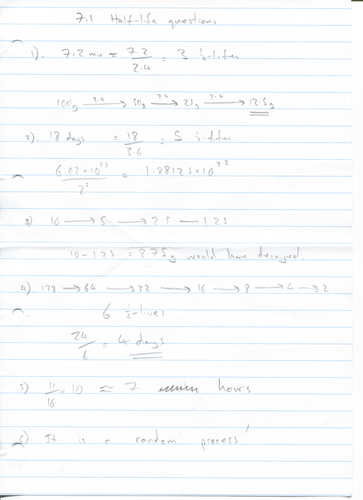 7.1 Half-life questions
1). 7.2 min = 7.2/2.4 = 3 ½-lifes
100g —2.4→ 50g —2.4→ 25g —2.4→ 12.5g
2). 18 days = 18/3.6 = 5 ½-lifes
6.02×10²³/2⁵ = 1.88125×10²²
3) 10 → 5 → 2.5 → 1.25
10 - 1.25 = 8.75g would have decayed
4). 128 → 64 → 32 → 16 → 8 → 4 → 2
6 ½-lives
24/6 = 4 days
5) 11/16 × 10 ≈ 7 hours
6) It is a random process